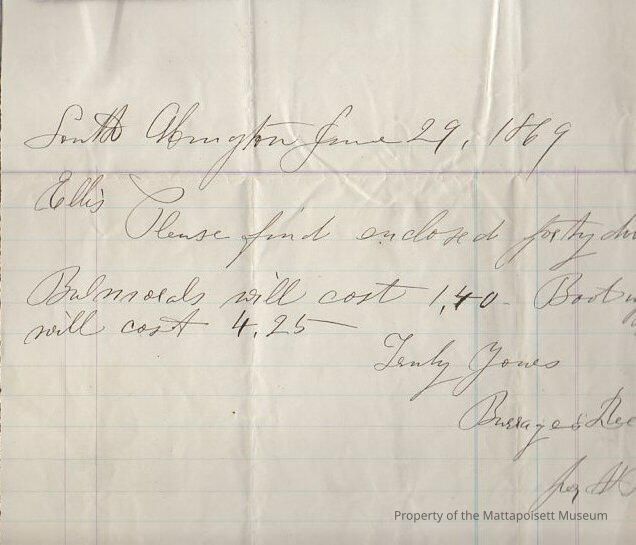 South Abington June 29, 1869
Ellis
Please find enclosed forty
Balmorals will cost 1,40- Boot
will cost 4.25
Truly Yours
Burrage &
per
Property of the Mattapoisett Museum